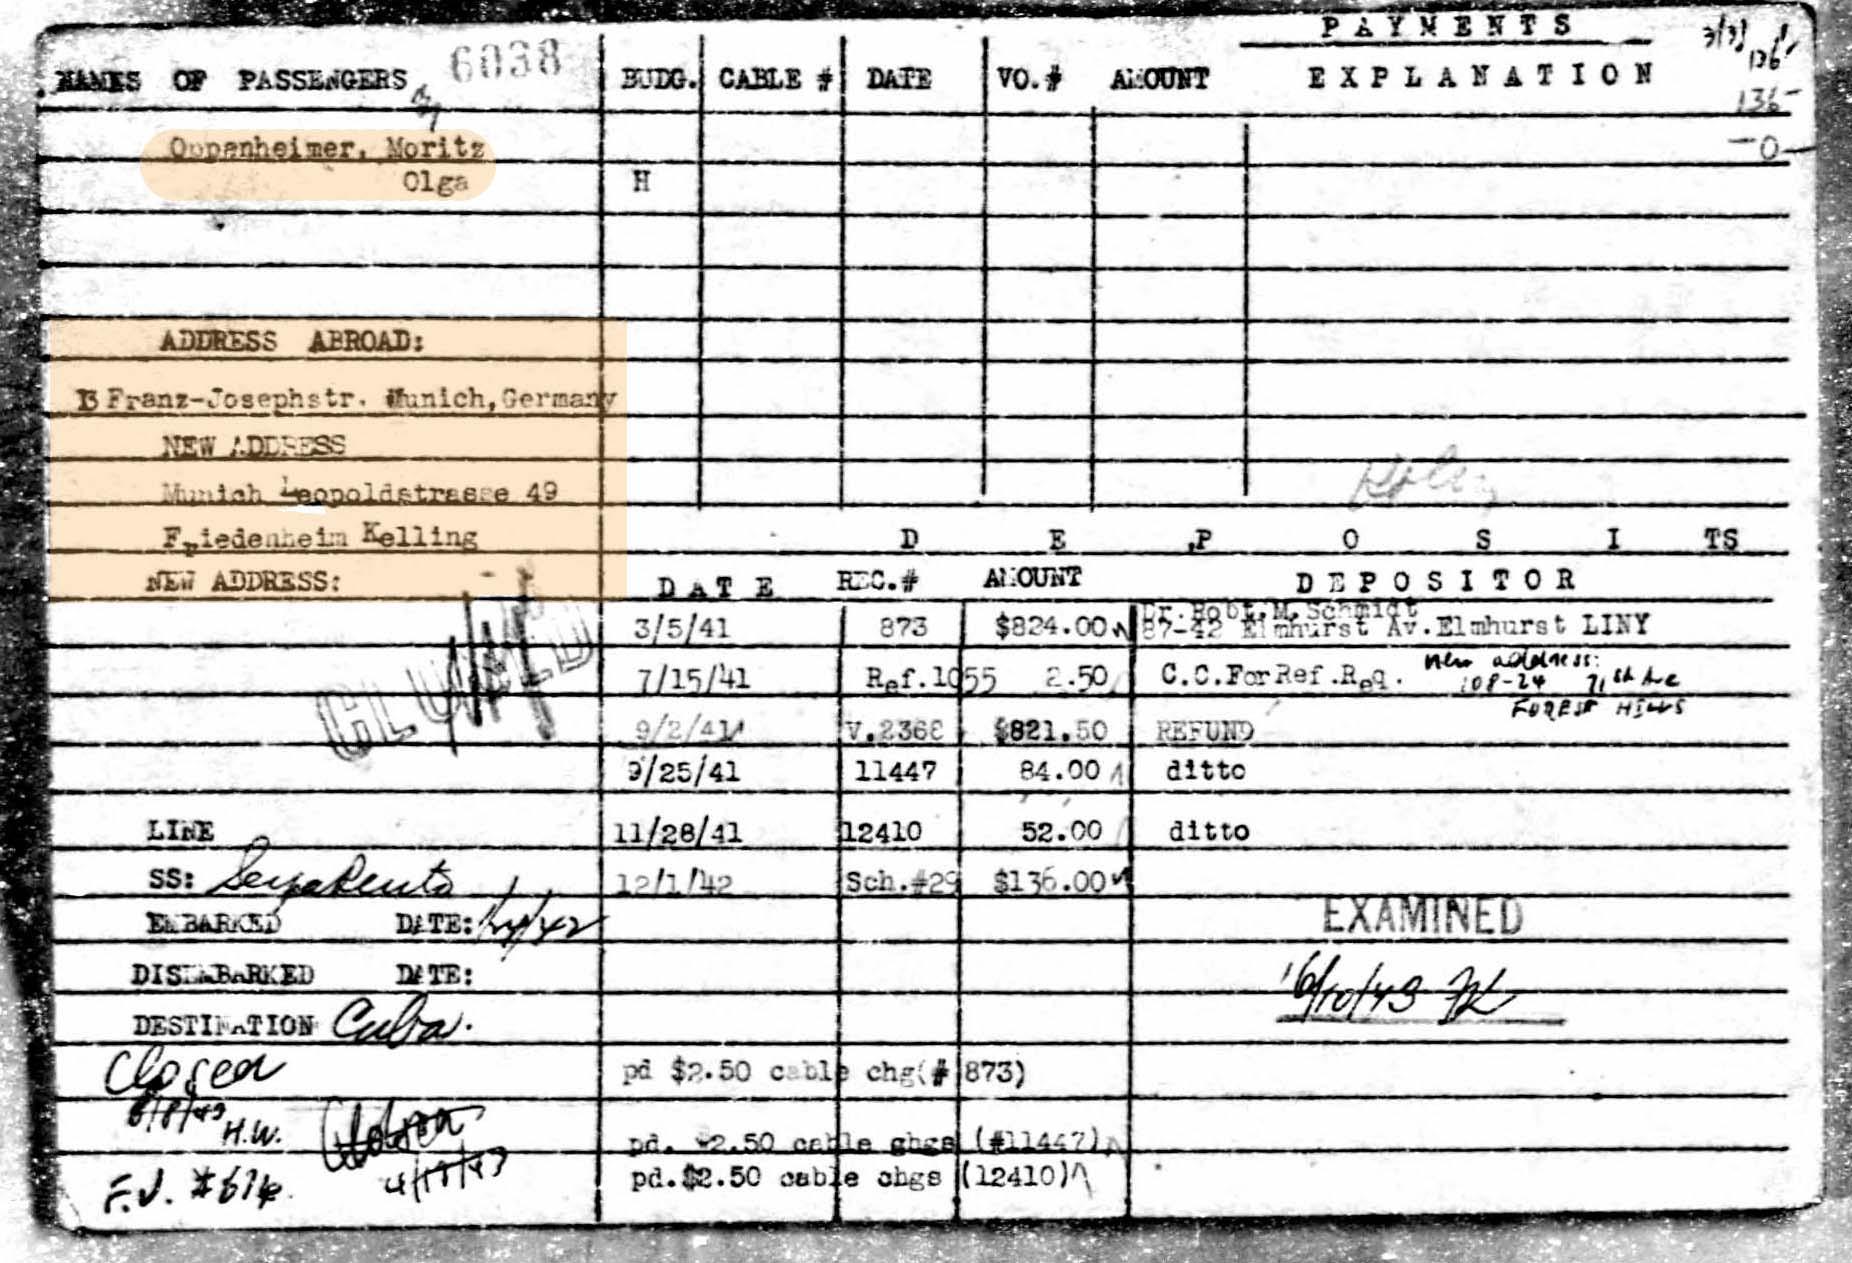 PAYMENTS
NAMES OF PASSENGERS 6038 BUDG. CABLE # DATE VO.# AMOUNT EXPLANATION
136
136-
-0-
Oppenheimer, Moritz
Olga H
ADDRESS ABROAD:
13 Franz-Josephstr. Munich, Germany
NEW ADDRESS
Munich Leopoldstrasse 49
Friedenheim Kelling D E P O S I TS
NEW ADDRESS: DATE REC.# AMOUNT DEPOSITOR
Dr. Robt. M. Schmidt
3/5/41 873 $824.00 87-42 Elmhurst Av. Elmhurst LINY
7/15/41 Ref.1055 2.50 C.C.For Ref.Req. new address:
108-24 71st Ave
FOREST HILLS
CLOSED
9/2/41 V.2368 $821.50 REFUND
9/25/41 11447 84.00 ditto
LINE 11/28/41 12410 52.00 ditto
SS: 12/1/42 Sch.#29 $136.00
EMBARKED DATE: EXAMINED
DISEMBARKED DATE: 6/10/43
DESTINATION Cuba.
Closed pd $2.50 cable chg(# 873)
6/8/43 H.W.
pd. $2.50 cable chgs (#11447)
4/19/43 pd.$2.50 cable chgs (12410)
F.J. #614